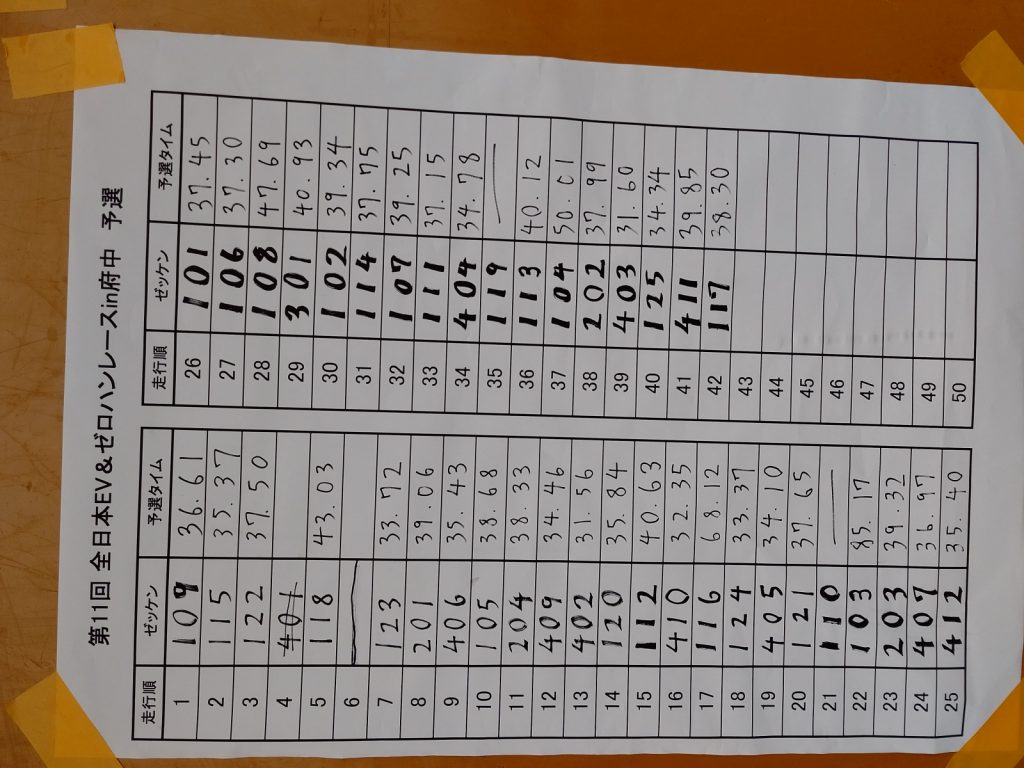 第11回 全日本EV＆ゼロハンレースin府中　予選
走行順 ゼッケン 予選タイム
1 109 36.61
2 115 35.37
3 122 37.50
4 401
5 118 43.03
6
7 123 33.72
8 201 39.06
9 406 35.43
10 105 38.68
11 204 38.33
12 409 34.46
13 402 31.56
14 120 35.84
15 112 40.63
16 410 32.35
17 116 68.12
18 124 33.37
19 405 34.10
20 121 37.65
21 110 —
22 103 85.17
23 203 39.32
24 407 36.97
25 412 35.40
走行順 ゼッケン 予選タイム
26 101 37.45
27 106 37.30
28 108 47.69
29 301 40.93
30 102 39.34
31 114 37.75
32 107 39.25
33 111 37.15
34 404 34.78
35 119 —
36 113 40.12
37 104 50.01
38 202 37.99
39 403 31.60
40 125 34.34
41 411 39.85
42 117 38.30
43
44
45
46
47
48
49
50